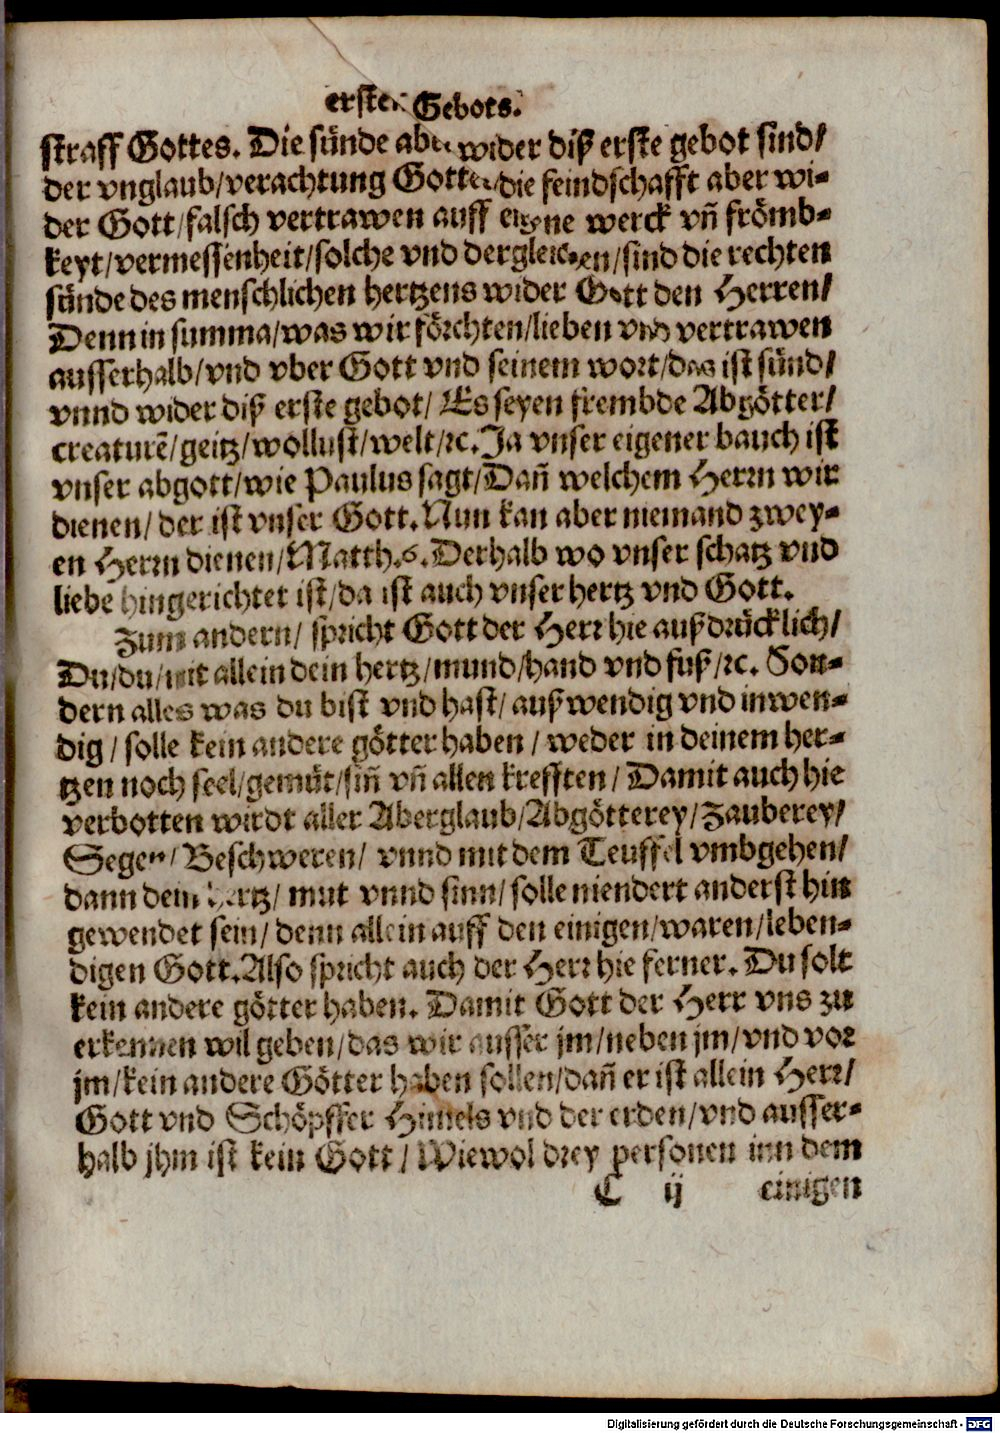 ersten Gebots.
straff Gottes. Die sünde aber wider diß erste gebot sind/
der vnglaub/verachtung Gottes/die feindschafft aber wi-
der Gott/falsch vertrawen auff eigne werck vñ frömb-
keyt/vermessenheit/solche vnd dergleichen/sind die rechten
sünde des menschlichen hertzens wider Gott den Herren/
Denn in summa/was wir förchten/lieben vnd vertrawen
ausserhalb/vnd vber Gott vnd seinem wort/das ist sünd/
vnnd wider diß erste gebot/ Es seyen frembde Abgötter/
creaturē/geitz/wollust/welt/ꝛc. Ja vnser eigener bauch ist
vnser abgott/wie Paulus sagt/Dañ welchem Herrn wir
dienen/ der ist vnser Gott. Nun kan aber niemand zwey-
en Herrn dienen/Matth.6. Derhalb wo vnser schatz vnd
liebe hingerichtet ist/da ist auch vnser hertz vnd Gott.
Zum andern/ spricht Gott der Herr hie außdrücklich/
Du/du/nit allein dein hertz/mund/hand vnd fuß/ꝛc. Son-
dern alles was du bist vnd hast/ außwendig vnd inwen-
dig/ solle kein andere götter haben/ weder in deinem her-
tzen noch seel/gemüt/siñ vñ allen krefften/ Damit auch hie
verbotten wirdt aller Aberglaub/Abgötterey/Zauberey/
Segen/ Beschweren/ vnnd mit dem Teuffel vmbgehen/
dann dein hertz/ mut vnnd sinn/ solle niendert anderst hin
gewendet sein/ denn allein auff den einigen/waren/leben-
digen Gott. Also spricht auch der Herr hie ferner. Du solt
kein andere götter haben. Damit Gott der Herr vns zu
erkennen wil geben/das wir ausser jm/neben jm/vnd vor
jm/kein andere Götter haben sollen/dañ er ist allein Herr/
Gott vnd Schöpffer Himels vnd der erden/vnd ausser-
halb jhm ist kein Gott/ Wiewol drey personen inn dem
C ij einigen
Digitalisierung gefördert durch die Deutsche Forschungsgemeinschaft - DFG